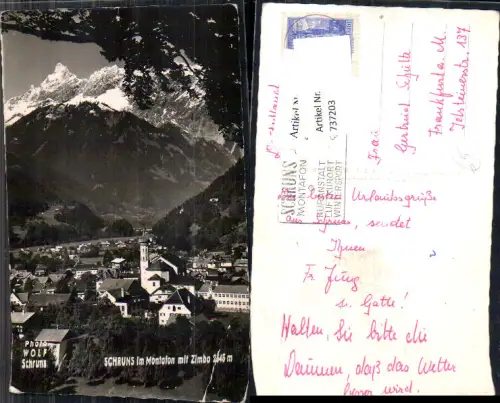 Photo
WOLF
Schruns
SCHRUNS im Montafon mit Zimba 2645 m
Artikel Nr.
737203
SCHRUNS
MONTAFON
KURANSTALT
LUFTKURORT
WINTERSPORT
Frau
Gertrud Schulte
Frankfurt a. M.
137
Urlaubsgrüße
aus Schruns, sendet
Ihnen
Fr. Jung
u. Gatte!
Halten Sie bitte die
Daumen, daß das Wetter
besser wird.